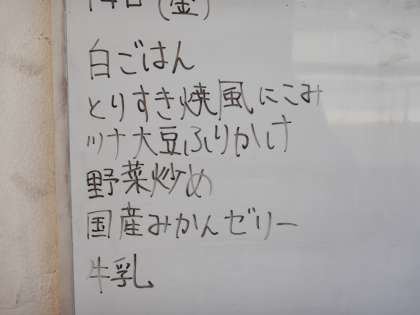 14日(金)
白ごはん
とりすき焼風にこみ
ツナ大豆ふりかけ
野菜炒め
国産みかんゼリー
牛乳